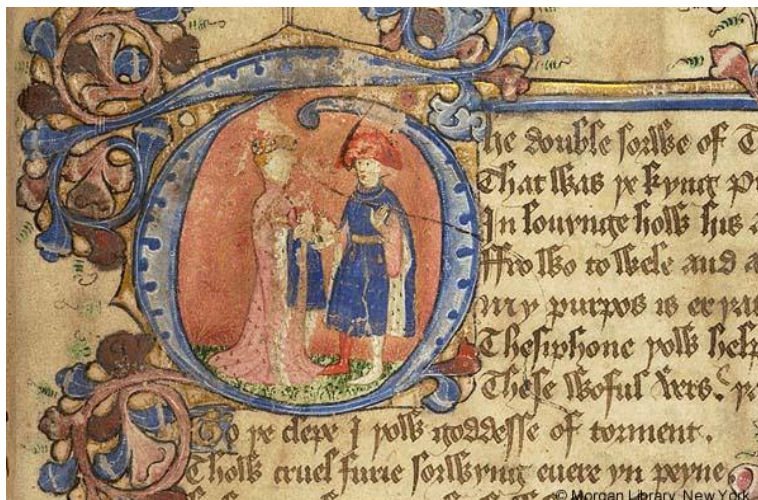 The double sorwe of T
That was þe kyng P
In louynge how his a
ffro wo to wele and a
my purpos is er þat
Thesiphone þow help
These woful vers.
To þe clepe I þow goddesse of torment.
Thow cruel furie sorwyng euere yn peyne
© Morgan Library, New York